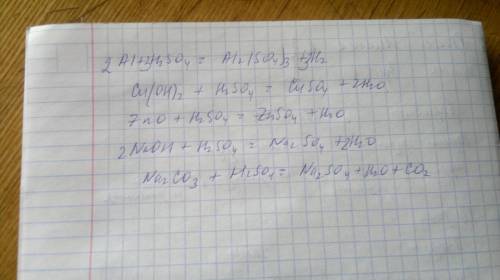 2Al+3H₂SO₄ = Al₂(SO₄)₃ + 3H₂
Cu(OH)₂ + H₂SO₄ = CuSO₄ + 2H₂O
ZnO + H₂SO₄ = ZnSO₄ + H₂O
2NaOH + H₂SO₄ = Na₂SO₄ + 2H₂O
Na₂CO₃ + H₂SO₄ = Na₂SO₄ + H₂O + CO₂